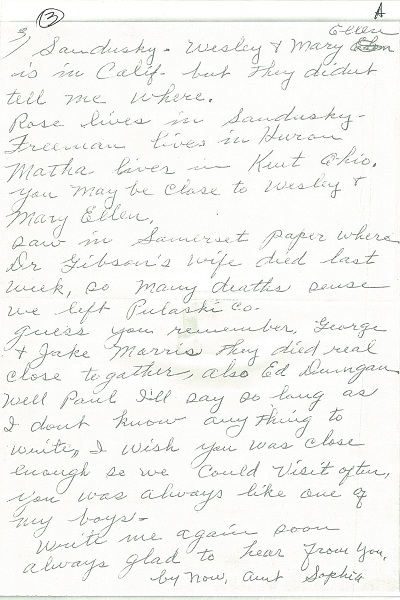 3 A
3) Sandusky - Wesley & Mary Ellen
is in Calif- but they didnt
tell me where.
Rose lives in Sandusky-
Freeman lives in Huron
Matha lives in Kent Ohio.
you may be close to Wesley &
Mary Ellen.
saw in Somerset paper where
Dr Gibson's wife died last
week, so many deaths sense
we left Pulaski Co.
guess you remember, George
& Jake Morris they died real
close togather, also Ed Dungan
Well Paul I'll say so long as
I dont know any thing to
write, I wish you was close
enough so we could visit often,
you was always like one of
my boys-
Write me again soon
always glad to hear from you,
by now, aunt Sophia